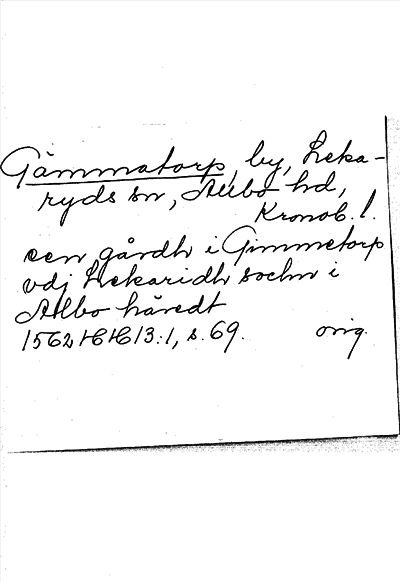 Gämmatorp, by, Leka-
ryds sn, Allbo hd,
Kronob. l.
een gårdh i Gimmetorp
vdj Lekaridh sochn i
Allbo häredt
1562 HH 13:1, s. 69. orig.